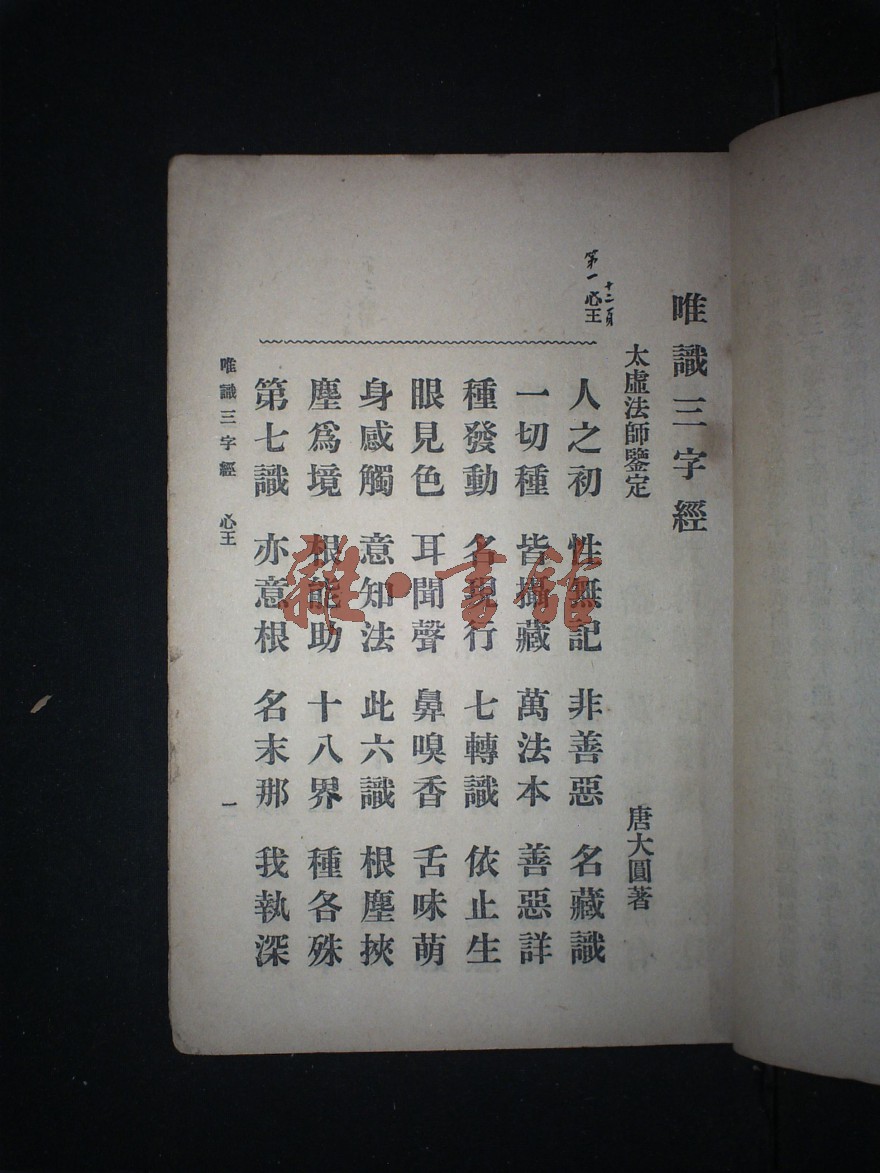 唯識三字經
太虛法師鑒定 唐大圓著
十二頁
第一心王
人之初 性無記 非善惡 名藏識
一切種 皆攝藏 萬法本 善惡詳
種發動 名現行 七轉識 依止生
眼見色 耳聞聲 鼻嗅香 舌味萌
身感觸 意知法 此六識 根塵挾
塵爲境 根能助 十八界 種各殊
第七識 亦意根 名末那 我執深
唯識三字經 心王 一
雜·書館